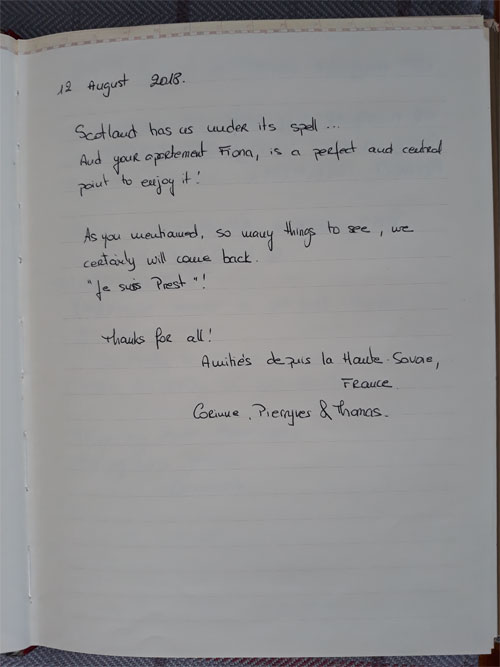 12 August 2018.
Scotland has us under its spell ...
And your apartement Fiona, is a perfect and central
point to enjoy it!
As you mentioned, so many things to see, we
certainly will come back.
"Je suis Prest"!
Thanks for all!
Amitiés depuis la Haute-Savoie,
France.
Corinne, Pierryves & Thomas.